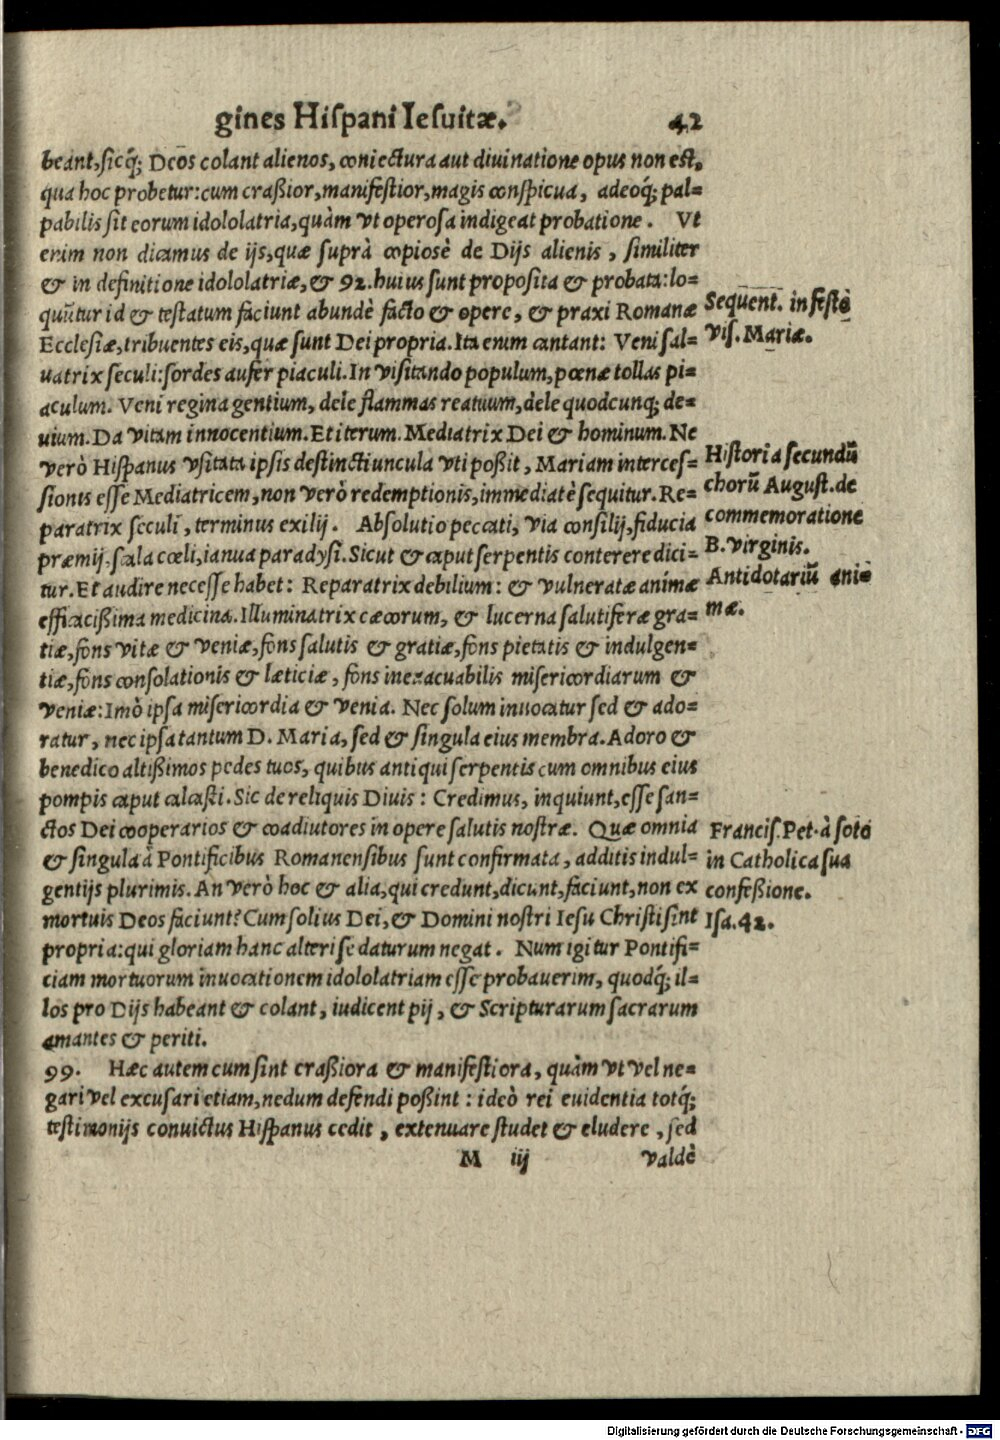 gines Hiſpani Ieſuitæ. 42
beant, ſicq́; Deos colant alienos, coniectura aut diuinatione opus non eſt,
qua hoc probetur: cum craßior, manifeſtior, magis conſpicua, adeoq́; pal=
pabilis ſit eorum idololatria, quàm vt operoſa indigeat probatione. Vt
enim non dicamus de ijs, quæ ſuprà copiosè de Dijs alienis, ſimiliter
& in definitione idololatriæ, & 92. huius ſunt propoſita & probata: lo=
quũtur id & teſtatum faciunt abundè facto & opere, & praxi Romanæ
Eccleſiæ, tribuentes eis, quæ ſunt Dei propria. Ita enim cantant: Veni ſal=
uatrix ſeculi: ſordes aufer piaculi. In viſitando populum, pœnæ tollas pi=
aculum. Veni regina gentium, dele flammas reatuum, dele quodcunq; de=
uium. Da vitam innocentium. Et iterum. Mediatrix Dei & hominum. Ne
verò Hiſpanus vſitata ipſis deſtinctiuncula vti poßit, Mariam interceſ=
ſionis eſſe Mediatricem, non verò redemptionis, immediatè ſequitur. Re=
paratrix ſeculi, terminus exilij. Abſolutio peccati, via conſilij, fiducia
præmij, ſcala cœli, ianua paradyſi. Sicut & caput ſerpentis conterere dici=
tur. Et audire neceſſe habet: Reparatrix debilium: & vulneratæ animæ
efficacißima medicina. Illuminatrix cæcorum, & lucerna ſalutiferæ gra=
tiæ, fons vitæ & veniæ, fons ſalutis & gratiæ, fons pietatis & indulgen=
tiæ, fons conſolationis & læticiæ, fons inexacuabilis miſericordiarum &
veniæ: Imò ipſa miſericordia & venia. Nec ſolum inuocatur ſed & ado=
ratur, nec ipſa tantum D. Maria, ſed & ſingula eius membra. Adoro &
benedico altißimos pedes tuos, quibus antiqui ſerpentis cum omnibus eius
pompis caput calcaſti. Sic de reliquis Diuis: Credimus, inquiunt, eſſe ſan=
ctos Dei cooperarios & coadiutores in opere ſalutis noſtræ. Quæ omnia
& ſingula à Pontificibus Romanenſibus ſunt confirmata, additis indul=
gentijs plurimis. An verò hoc & alia, qui credunt, dicunt, faciunt, non ex
mortuis Deos faciunt? Cum ſolius Dei, & Domini noſtri Ieſu Chriſti ſint
propria: qui gloriam hanc alteri ſe daturum negat. Num igitur Pontifi=
ciam mortuorum inuocationem idololatriam eſſe probauerim, quodq́; il=
los pro Dijs habeant & colant, iudicent pij, & Scripturarum ſacrarum
amantes & periti.
99. Hæc autem cum ſint craßiora & manifeſtiora, quàm vt vel ne=
gari vel excuſari etiam, nedum defendi poßint: ideò rei euidentia totq́;
teſtimonijs conuictus Hiſpanus cedit, extenuare ſtudet & eludere, ſed
M iij valdè
Sequent. in feſtò
viſ. Mariæ.
Hiſtoria ſecundũ
chorũ Auguſt. de
commemoratione
B. virginis.
Antidotariũ ani=
mæ.
Franciſ. Pet. à ſoto
in Catholica ſua
confeßione.
Iſa. 42.
Digitalisierung gefördert durch die Deutsche Forschungsgemeinschaft - DFG